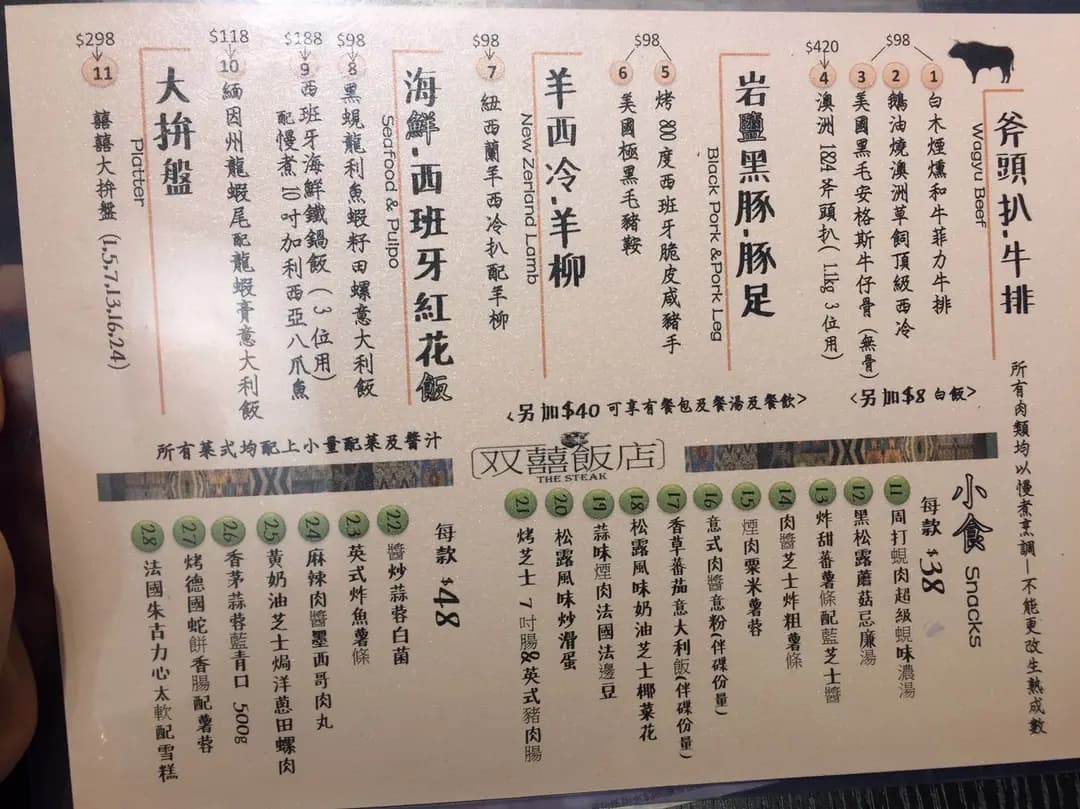 斧頭扒·牛排
Wagyu Beef
$98
1 白木煙燻和牛菲力牛排
2 鵝油燒澳洲草飼頂級西冷
3 美國黑毛安格斯牛仔骨(無骨)
$420
4 澳洲1824斧頭扒(1.1kg 3位用)
岩鹽黑豚·豚足
Black Pork &Pork Leg
$98
5 烤800度西班牙脆皮咸豬手
6 美國極黑毛豬鞍
羊西冷·羊柳
New Zerland Lamb
$98
7 紐西蘭羊西冷扒配羊柳
海鮮·西班牙紅花飯
Seafood & Pulpo
$98
8 黑蜆龍利魚蝦籽田螺意大利飯
$188
9 西班牙海鮮鐵鍋飯(3位用)
配慢煮10吋加利西亞八爪魚
$118
10 緬因州龍蝦尾配龍蝦膏意大利飯
大拚盤
Platter
$298
11 囍囍大拚盤(1,5,7,13,16,24)
<另加$8 白飯>
<另加$40 可享有餐包及餐湯及餐飲>
所有肉類均以慢煮烹調—不能更改生熟成數
所有菜式均配上小量配菜及醬汁
双囍飯店
THE STEAK
小食 Snacks
每款 $38
11 周打蜆肉超級蜆味濃湯
12 黑松露蘑菇忌廉湯
13 炸甜蕃薯條配藍芝士醬
14 肉醬芝士炸粗薯條
15 煙肉粟米薯蓉
16 意式肉醬意粉(伴碟份量)
17 香草蕃茄意大利飯(伴碟份量)
18 松露風味奶油芝士椰菜花
19 蒜味煙肉法國法邊豆
20 松露風味炒滑蛋
21 烤芝士7吋腸&英式豬肉腸
每款 $48
22 醬炒蒜蓉白菌
23 英式炸魚薯條
24 麻辣肉醬墨西哥肉丸
25 黃奶油芝士焗洋蔥田螺肉
26 香茅蒜蓉藍青口 500g
27 烤德國蛇餅香腸配薯蓉
28 法國朱古力心太軟配雪糕